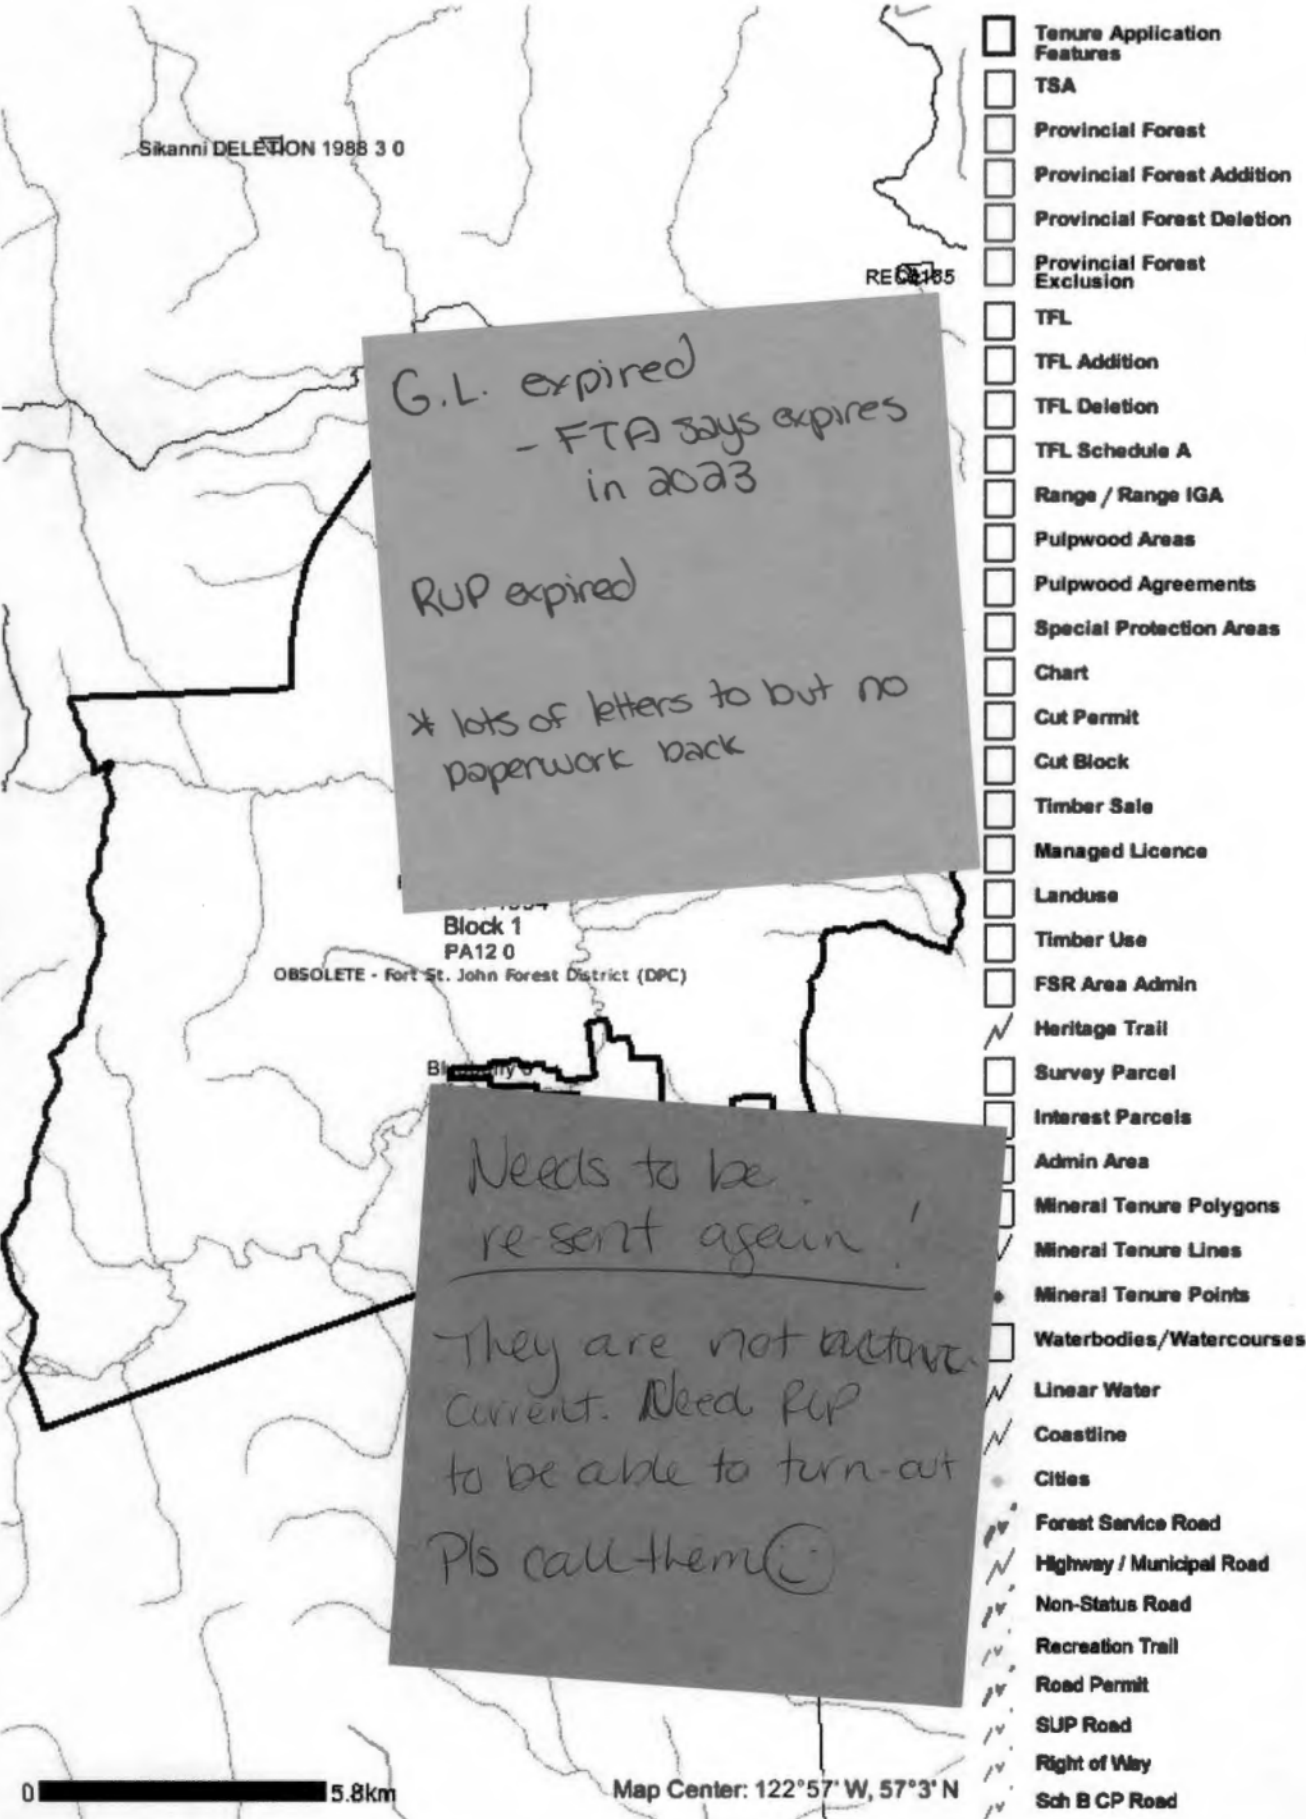 Sikanni DELETION 1988 3 0
G.L. expired
- FTA says expires
in 2023
RUP expired
* lots of letters to but no
paperwork back
Block 1
PA12 0
OBSOLETE - Fort St. John Forest District (DPC)
Needs to be
re-sent again!
They are not
current. Need RUP
to be able to turn-out
Pls call them
0 5.8km
Map Center: 122°57' W, 57°3' N
Tenure Application
Features
TSA
Provincial Forest
Provincial Forest Addition
Provincial Forest Deletion
Provincial Forest
Exclusion
TFL
TFL Addition
TFL Deletion
TFL Schedule A
Range / Range IGA
Pulpwood Areas
Pulpwood Agreements
Special Protection Areas
Chart
Cut Permit
Cut Block
Timber Sale
Managed Licence
Landuse
Timber Use
FSR Area Admin
Heritage Trail
Survey Parcel
Interest Parcels
Admin Area
Mineral Tenure Polygons
Mineral Tenure Lines
Mineral Tenure Points
Waterbodies/Watercourses
Linear Water
Coastline
Cities
Forest Service Road
Highway / Municipal Road
Non-Status Road
Recreation Trail
Road Permit
SUP Road
Right of Way
Sch B CP Road